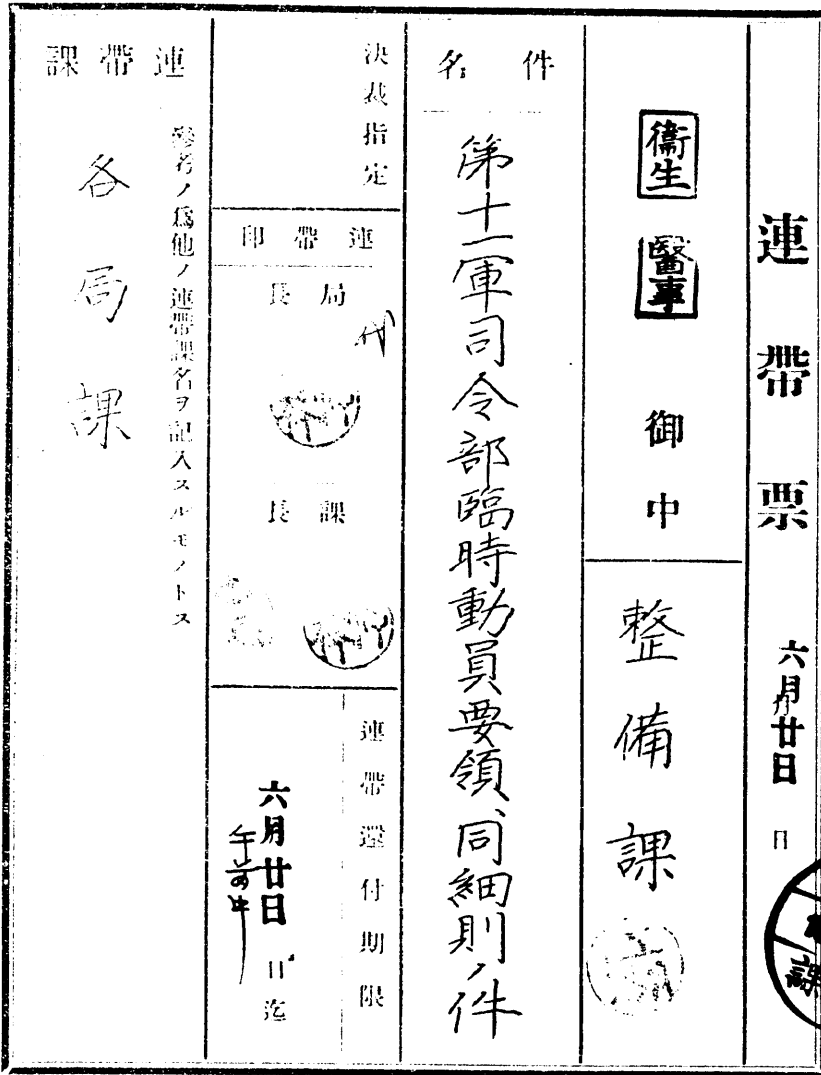 連帶票
六月廿日
月
日
衞生 醫事 御中
整備課
件名
第十一軍司令部臨時動員要領、同細則ノ件
決裁指定
連帶印
局長
代
課長
連帶還付期限
六月廿日
日迄
午前中
連帶課
參考ノ爲他ノ連帶課名ヲ記入スルモノトス
各局課